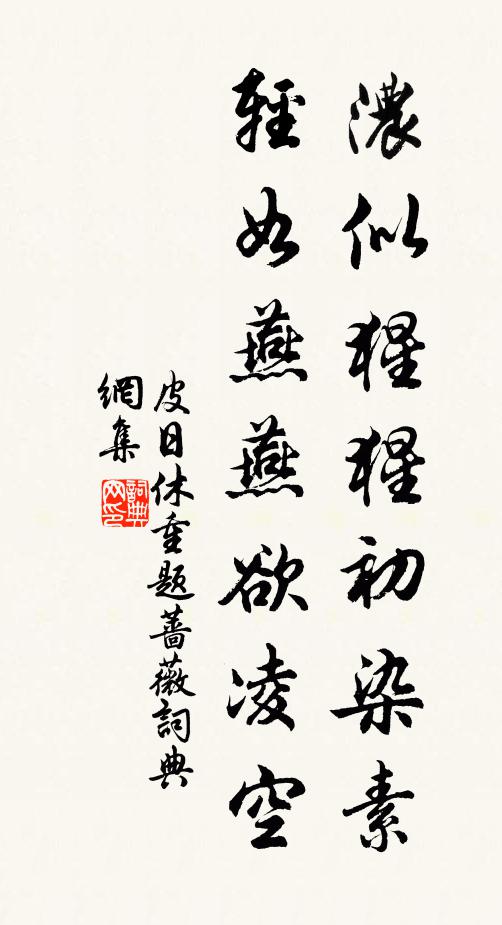 濃似猩猩初染素
輕如燕燕欲凌空
皮日休重題薔薇詞典
網集
詞典
网印